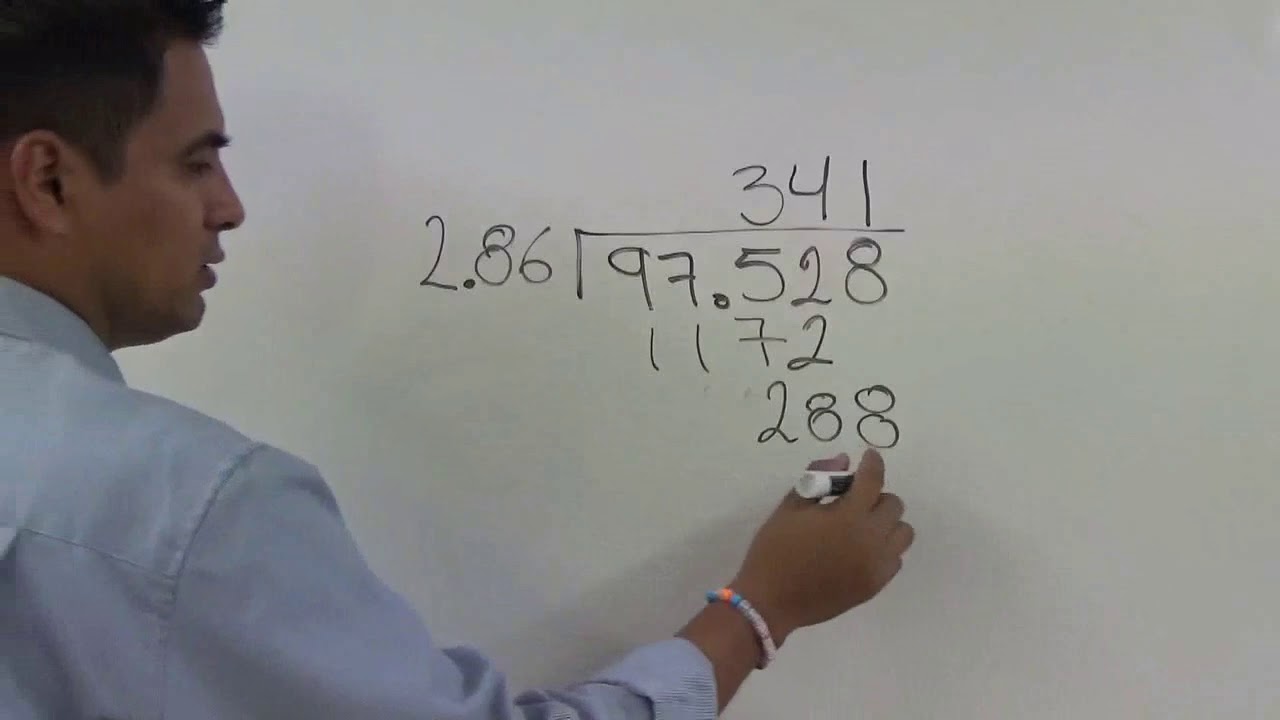 341
2.86 97.528
1172
288